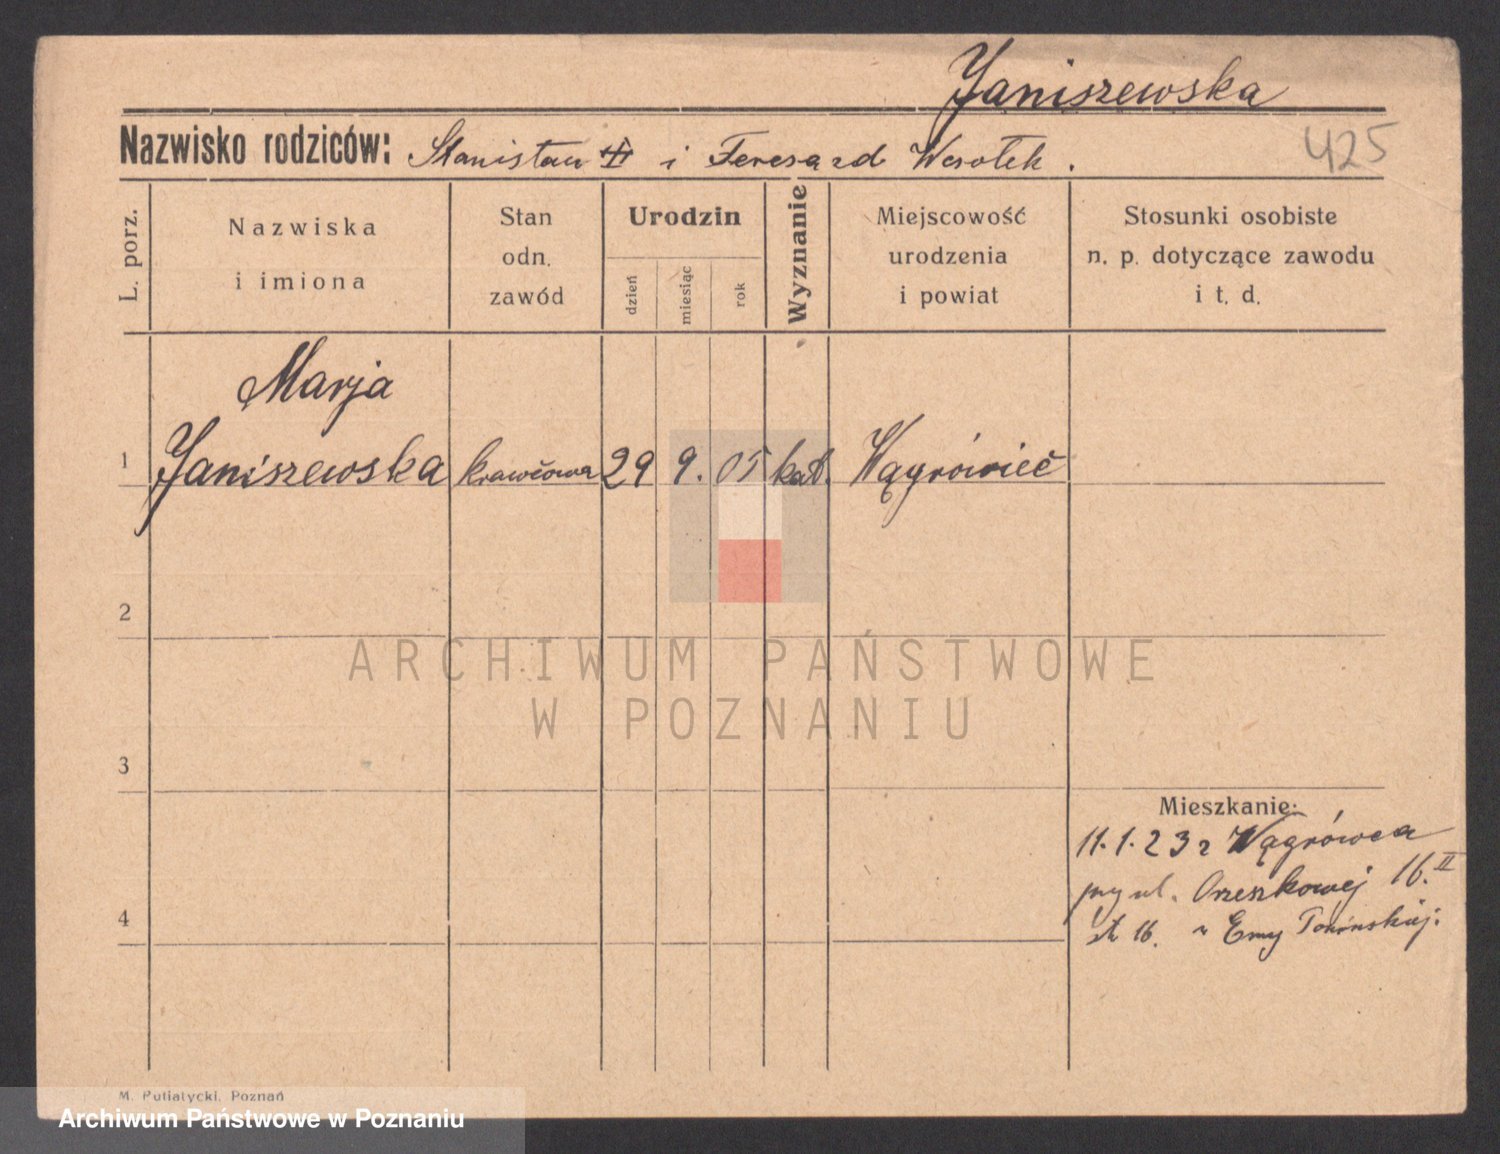 Janiszewska
Nazwisko rodziców: Stanisław i Teresa zd Wesołek.
425
L. porz.
Nazwiska
i imiona
Stan
odn.
zawód
Urodzin
dzień
miesiąc
rok
Wyznanie
Miejscowość
urodzenia
i powiat
Stosunki osobiste
n. p. dotyczące zawodu
i t. d.
Marja
1 Janiszewska krawcowa 29 9. 05 kat. Wągrówiec
2
3
4
Mieszkanie:
11.1.23 z Wągrówca
przy ul. Orzeszkowej 16. II
16. Emy
M. Putiatycki, Poznań
ARCHIWUM PAŃSTWOWE
W POZNANIU
Archiwum Państwowe w Poznaniu